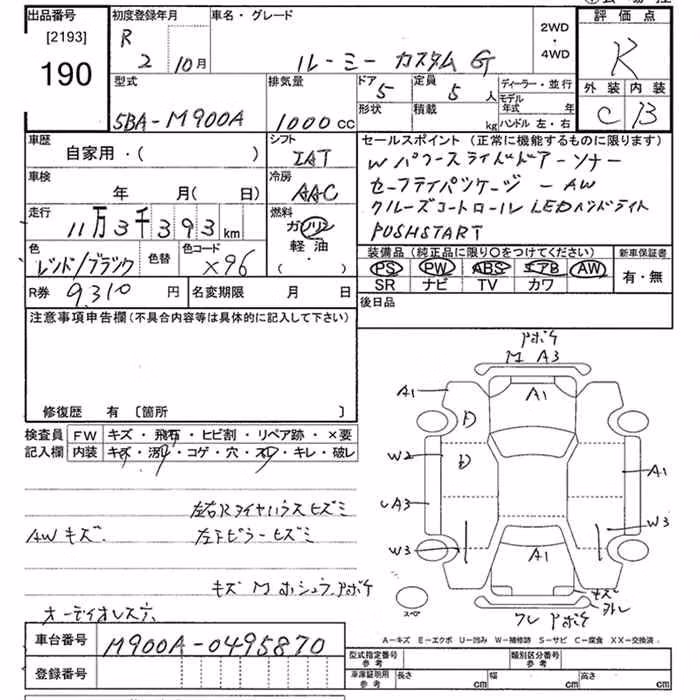 出品番号 初度登録年月 車名・グレード 評価点
[2193] R 2WD
190 2 10月 ルーミー カスタム G ・ R
4WD
型式 排気量 ドア 定員 ディーラー・並行 外装 内装
5 5人 モデル年式 年
5BA-M900A 1000cc 形状 積載 kg ハンドル 左・右 C B
車歴 シフト セールスポイント (正常に機能するものに限ります)
自家用・( ) IAT Wパワースライドドアーソナー
車検 冷房 セーフティパッケージ - AW
年 月( 日) AAC クルーズコントロール LEDヘッドライト
走行 燃料 PUSHSTART
11万3千393km ガソリン
色 色替 色コード 軽油 装備品 (純正品に限り○をつけてください) 新車保証書
レッド/ブラック X96 ・( ) PS PW ABS エアB AW 有・無
R券 9,310円 名変期限 月 日 SR ナビ TV カワ
注意事項申告欄(不具合内容等は具体的に記入して下さい) 後日品
修復歴 有 〔箇所 〕
検査員 FW キズ・飛石・ヒビ割・リペア跡・×要
記入欄 内装 キズ・汚レ・コゲ・穴・スレ・キレ・破レ
左右Rタイヤハウスヒズミ
AWキズ. 左下ピラーヒズミ
キズ M ホシュウ.アボケ
オーディオレス
アボケ
M A3
A1 A1
W2 A1
A3 W3
W3 A1
キズ
スペア ワレ アボケ
A-キズ E-エクボ U-凹み W-補修跡 S-サビ C-腐食 XX-交換済
車台番号 M900A-0495870
型式指定番号 参考 類別区分番号 参考
登録番号 車庫証明用 参考 長さ cm 幅 cm 高さ cm